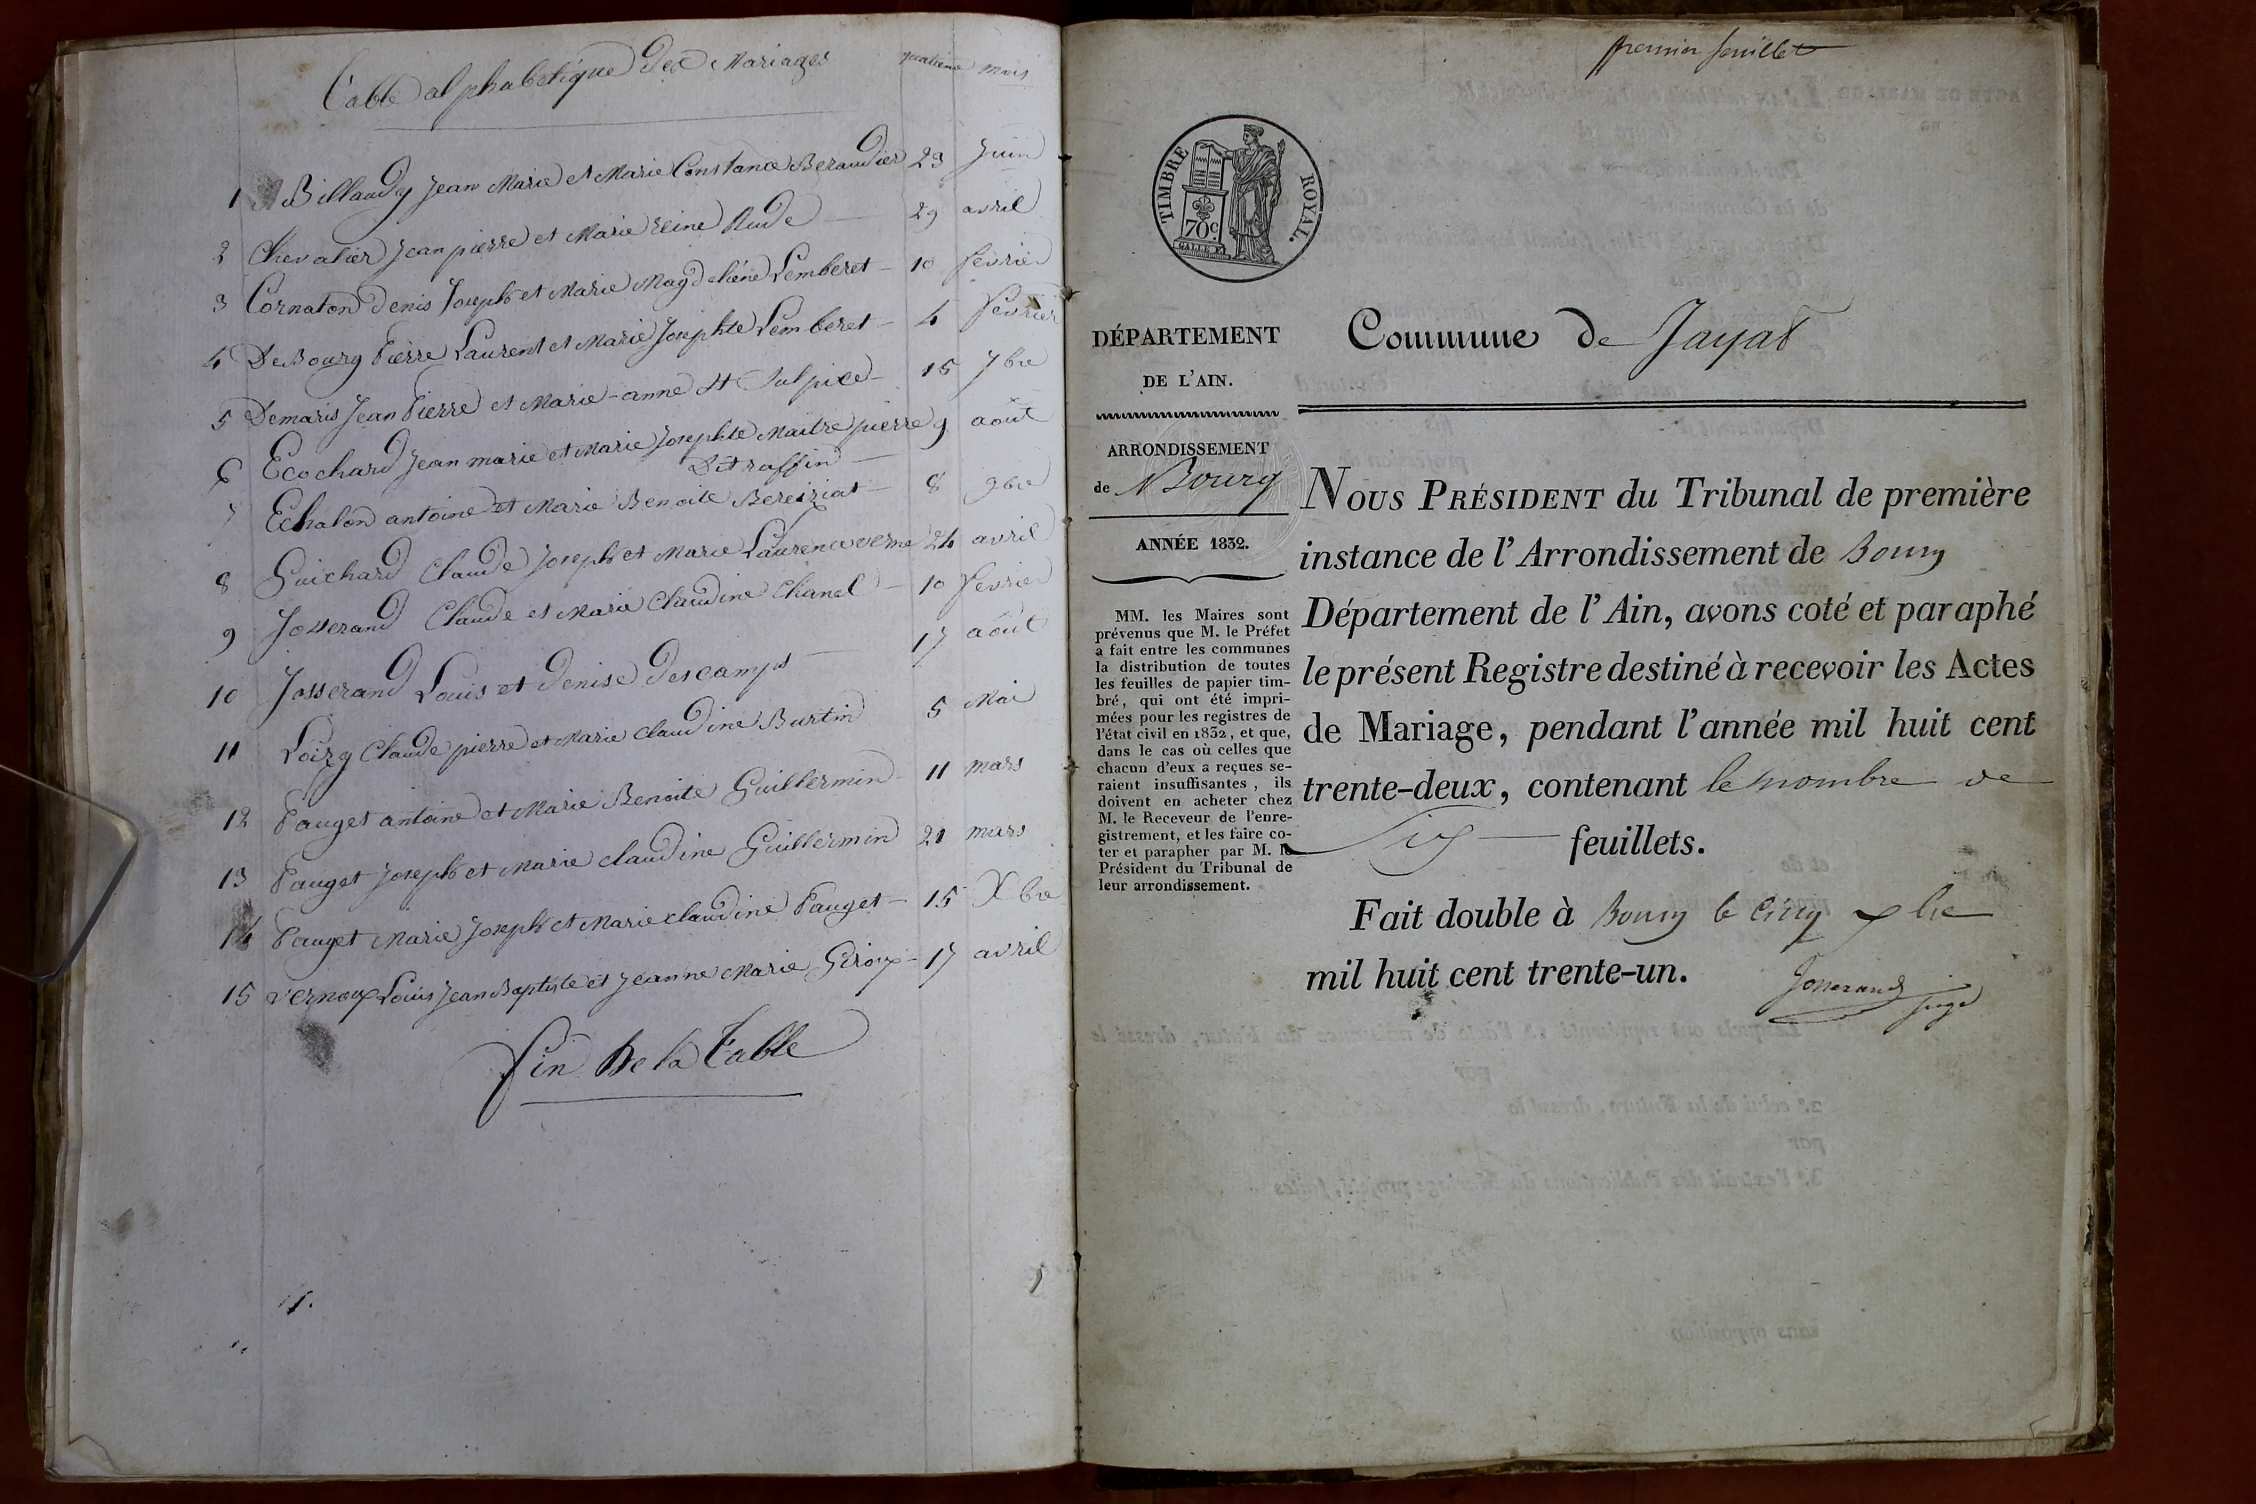 Table alphabetique des Mariages quatieme mois
1 Billaudy Jean Marie et Marie Constance Beraudier 23 Juin
2 Chevalier Jean pierre et Marie reine Rude 29 avril
3 Cornaton denis Joseph et Marie Magdeleine Lemberet 10 fevrier
4 DeBourg Pierre Laurent et Marie Josephte Lemberet 4 fevrier
5 Demaris Jean Pierre et Marie-anne St Sulpice 15 7bre
6 Ecochard Jean marie et Marie Josephte Maitrepierre 9 août
Dit raffin
7 Echalon antoine et Marie Benoite Bereiziat 8 9bre
8 Guichard Claude Joseph et Marie Laurence verne 24 avril
9 Josserand Claude et Marie Claudine Chanel 10 fevrier
10 Josserand Louis et Denise Descamps 17 août
11 Loizy Claude pierre et Marie Claudine Burtin 5 Mai
12 Pauget antoine et Marie Benoite Guillermin 11 mars
13 Pauget Joseph et Marie claudine Guillermin 21 mars
14 Pauget Marie Joseph et Marie claudine Pauget 15 Xbre
15 vernoux Louis Jean Baptiste et Jeanne Marie Giroux 17 avril
fin de la Table
premier feuillet
TIMBRE ROYAL.
70c.
GALLE F.
DÉPARTEMENT
DE L'AIN.
Commune de Jayat
ARRONDISSEMENT
de Bourg
ANNÉE 1832.
MM. les Maires sont
prévenus que M. le Préfet
a fait entre les communes
la distribution de toutes
les feuilles de papier tim-
bré, qui ont été impri-
mées pour les registres de
l'état civil en 1832, et que,
dans le cas où celles que
chacun d'eux a reçues se-
raient insuffisantes, ils
doivent en acheter chez
M. le Receveur de l'enre-
gistrement, et les faire co-
ter et parapher par M. le
Président du Tribunal de
leur arrondissement.
NOUS PRÉSIDENT du Tribunal de première
instance de l'Arrondissement de Bourg
Département de l'Ain, avons coté et paraphé
le présent Registre destiné à recevoir les Actes
de Mariage, pendant l'année mil huit cent
trente-deux, contenant le nombre de
Six feuillets.
Fait double à Bourg le cinq xbre
mil huit cent trente-un.
Josserand
juge